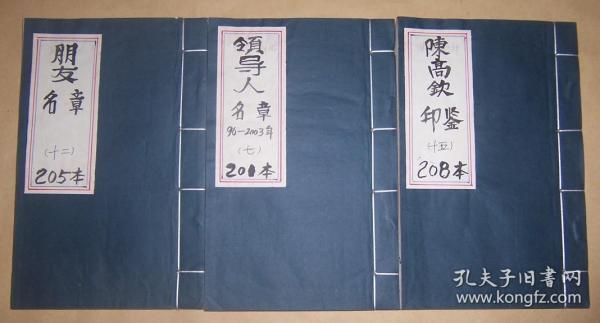 朋友
名章
(十二)
205本
領导人
名章
96-2003年
(七)
201本
陳高欽
印鉴
(十五)
208本
孔夫子旧书网
www.kongfz.com